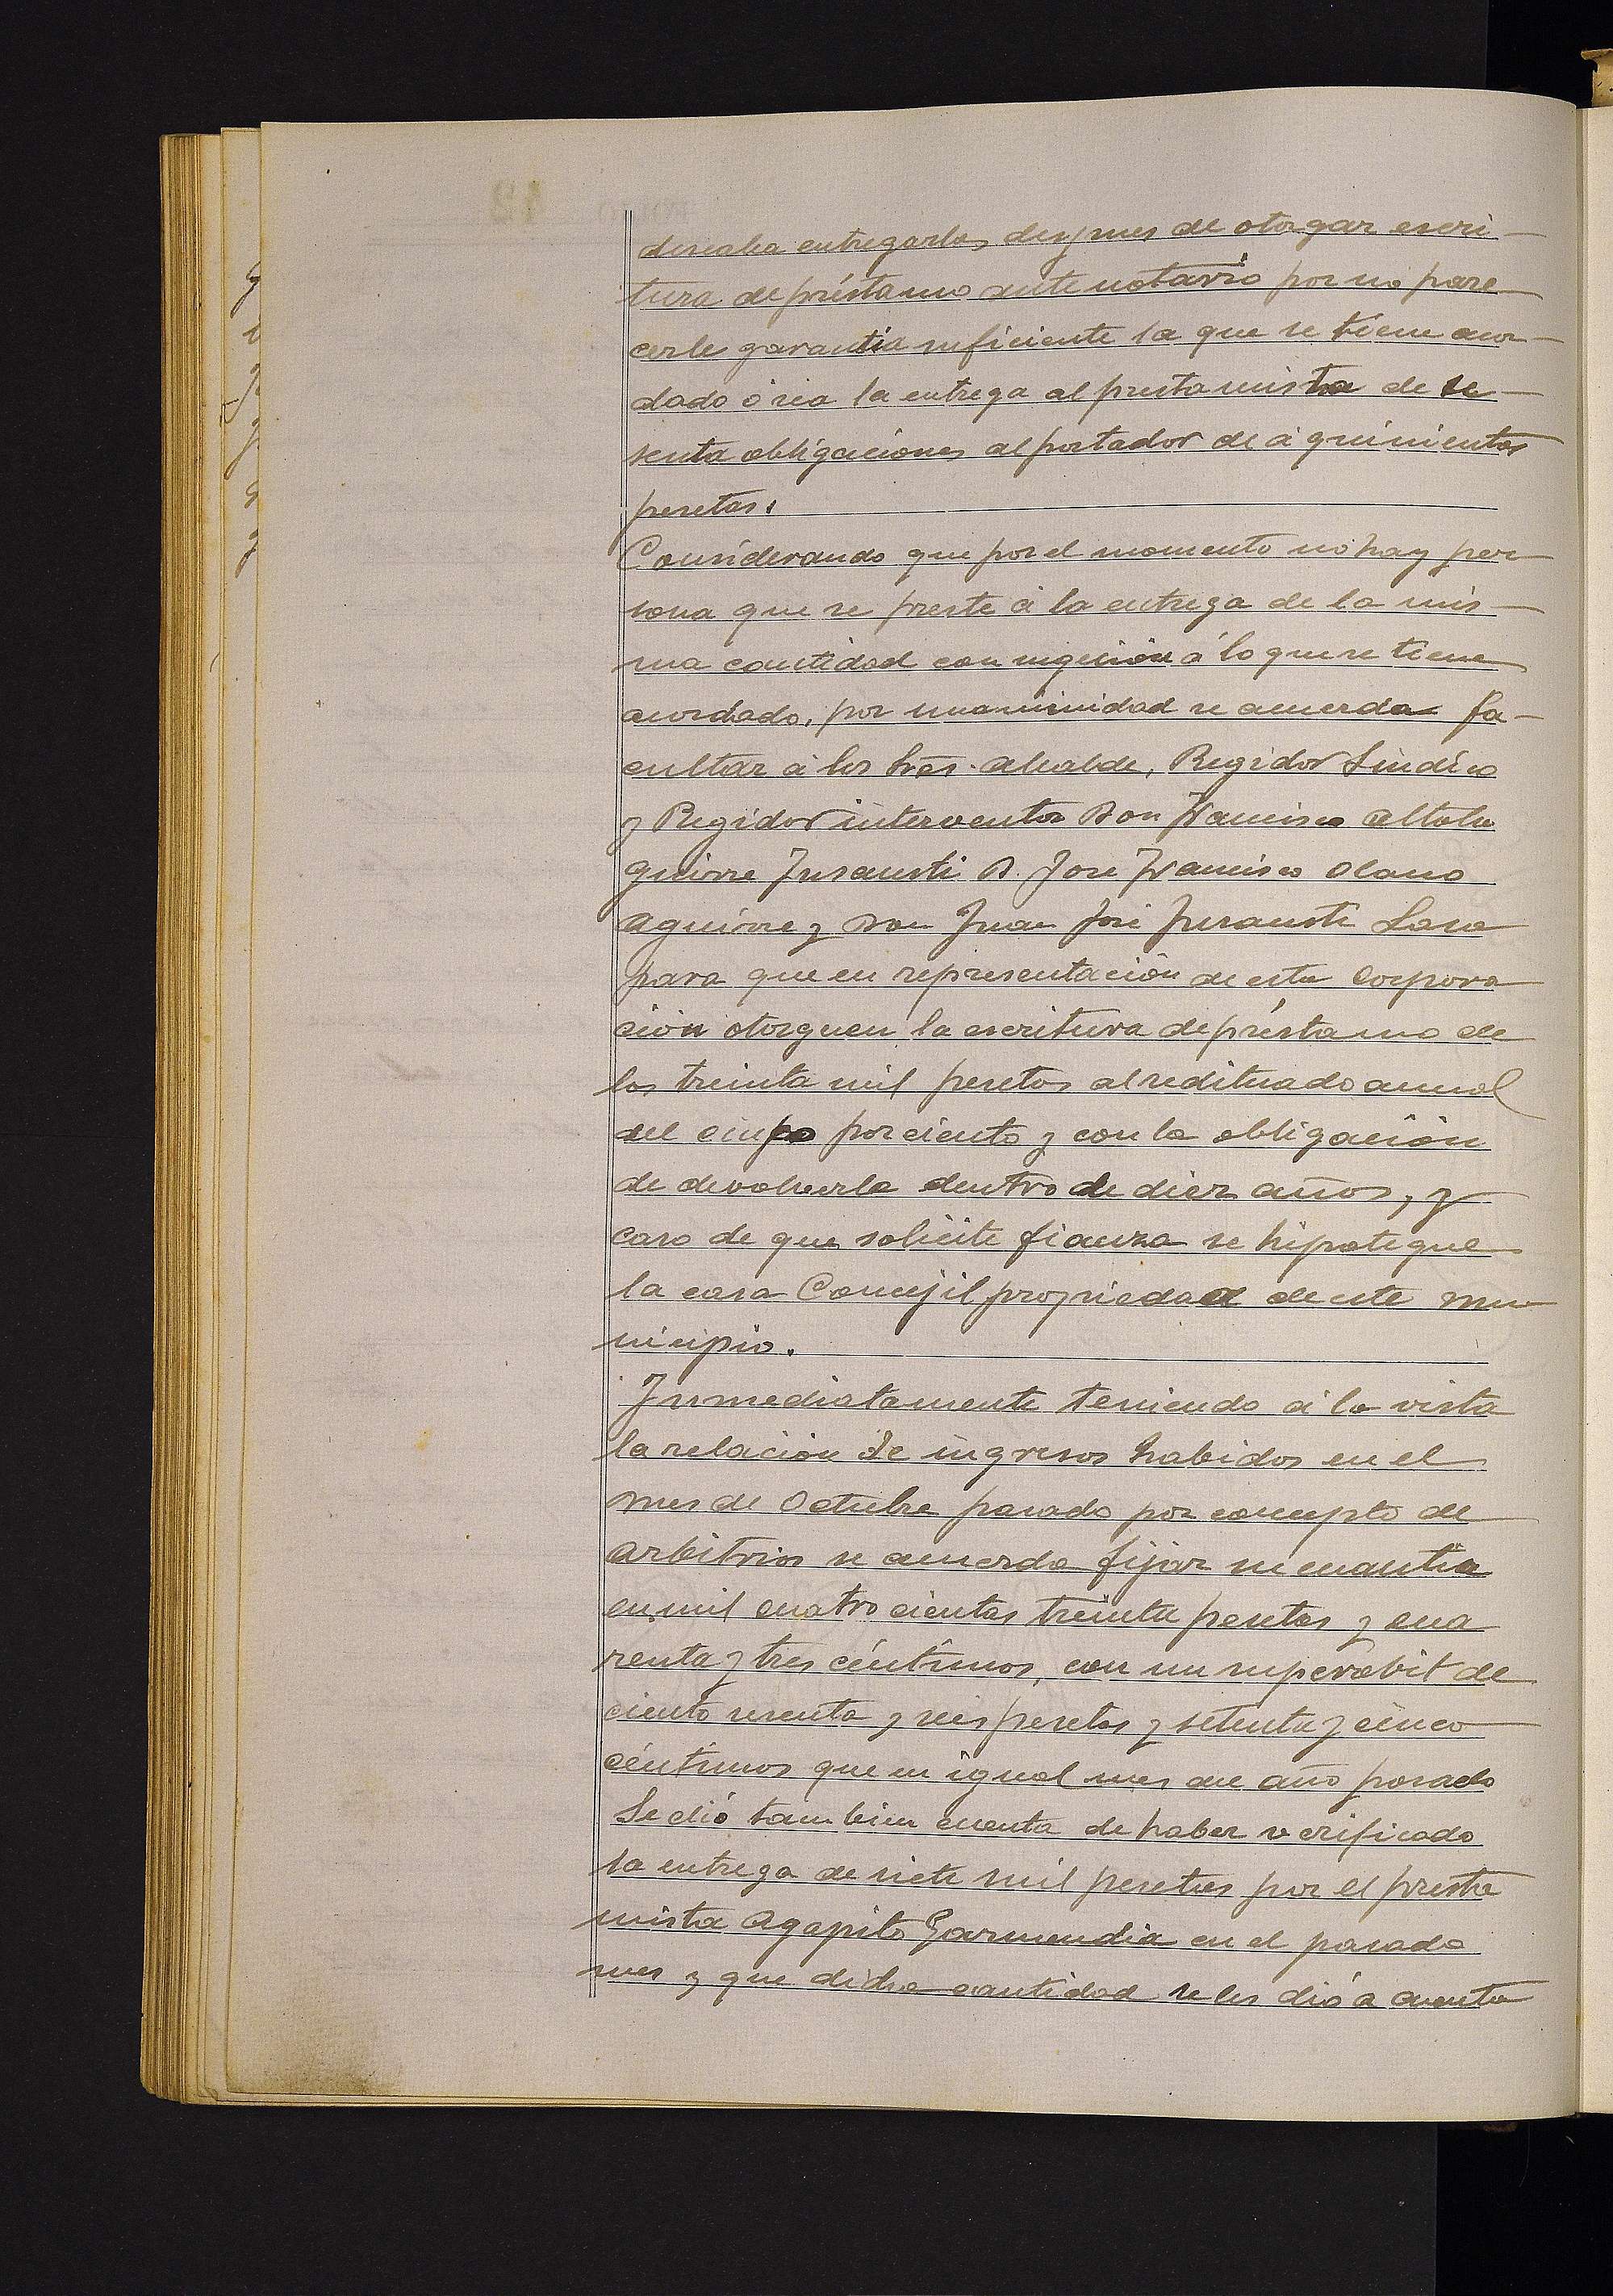 deseaba entregarlas despues de otorgar escri-
tura de préstamo ante notario por no pare-
cerle garantia suficiente la que se tiene acor-
dado ó sea la entrega al prestamista de se-
senta obligaciones al portador de á quinientas
pesetas.
Considerando que por el momento no hay per-
sona que se preste á la entrega de la mis-
ma cantidad con sugeción á lo que se tiene
acordado, por unanimidad se acuerda fa-
cultar á los Srės. alcalde, Regidor Sindico
y Regidor interventor Don Francisco Altola
guirre Insausti D. José Francisco Olano
Aguirre y Don Juan José Insausti Lasa
para que en representación de esta Corpora
ción otorguen la escritura de préstamo de
las treinta mil pesetas al redituado anual
del cinco por ciento y con la obligación
de devolverla dentro de diez años, y
caso de que solicite fianza se hipoteque
la casa Concejil propriedad de este mu-
nicipio.
Inmediatamente teniendo á la vista
la relación de ingresos habidos en el
mes de Octubre pasado por concepto de
arbitrios se acuerda fijar su cuantia
en mil cuatrocientas treinta pesetas y cua
renta y tres céntimos, con un superabit de
ciento sesenta y seis pesetas y setenta y cinco
céntimos que en igual mes del año pasado
Se dió tambien cuenta de haber verificado
la entrega de siete mil pesetas por el presta
mista Agapito Garmendia en el pasado
mes y que dicha cantidad se les dió a cuenta